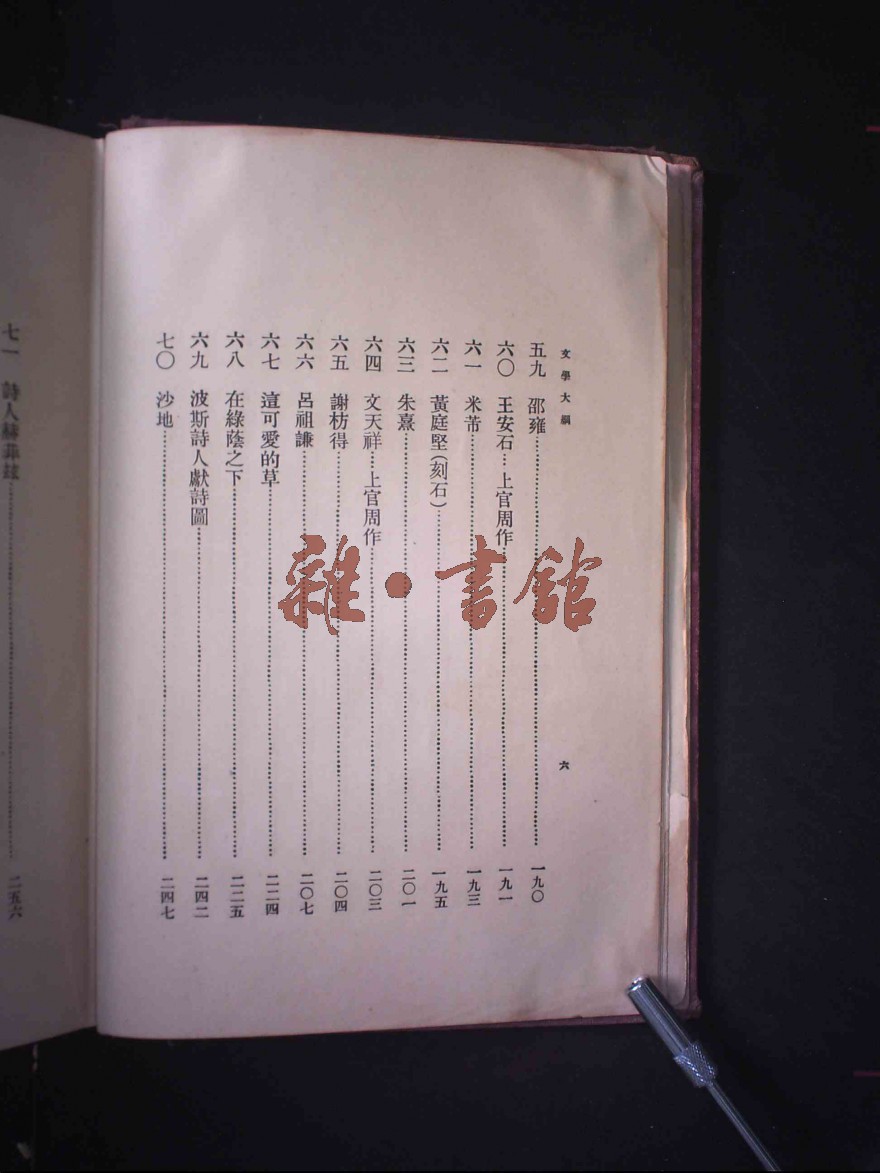 文學大綱
五九 邵雍 一九〇
六〇 王安石…上官周作 一九一
六一 米芾 一九三
六二 黃庭堅(刻石) 一九五
六三 朱熹 二〇一
六四 文天祥…上官周作 二〇三
六五 謝枋得 二〇四
六六 呂祖謙 二〇七
六七 這可愛的草 二二四
六八 在綠蔭之下 二二五
六九 波斯詩人獻詩圖 二四二
七〇 沙地 二四七
六
七一 詩人 二五六
雜·書館